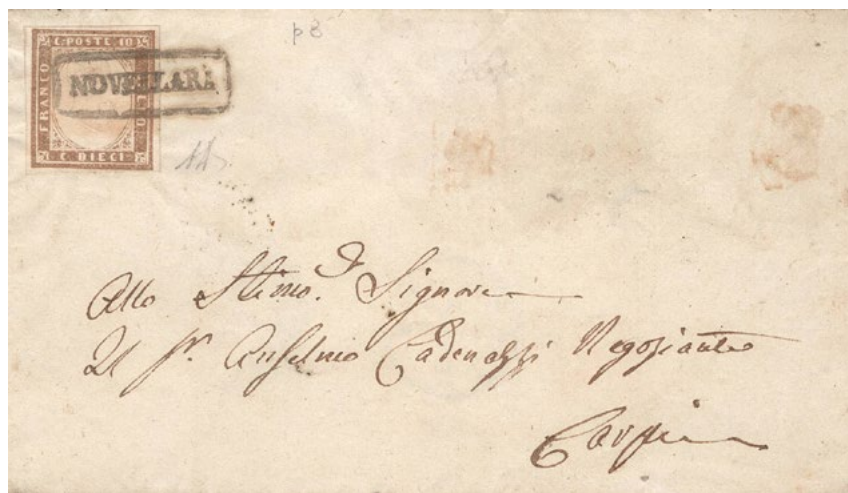 p 8
C. POSTE 10
FRANCO
BOLLO
C. DIECI
NOVELLARA
Allo Stimo. Signore
Il Sr. Anselmo Cadenazzi Negoziante
Carpi